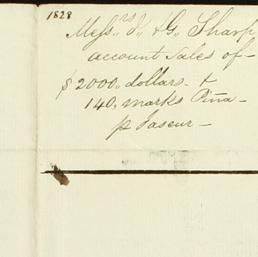 1828
Messrs. J. & G. Sharp
account sales of
$ 2000. dollars &
140. marks Pina
p Jaseur